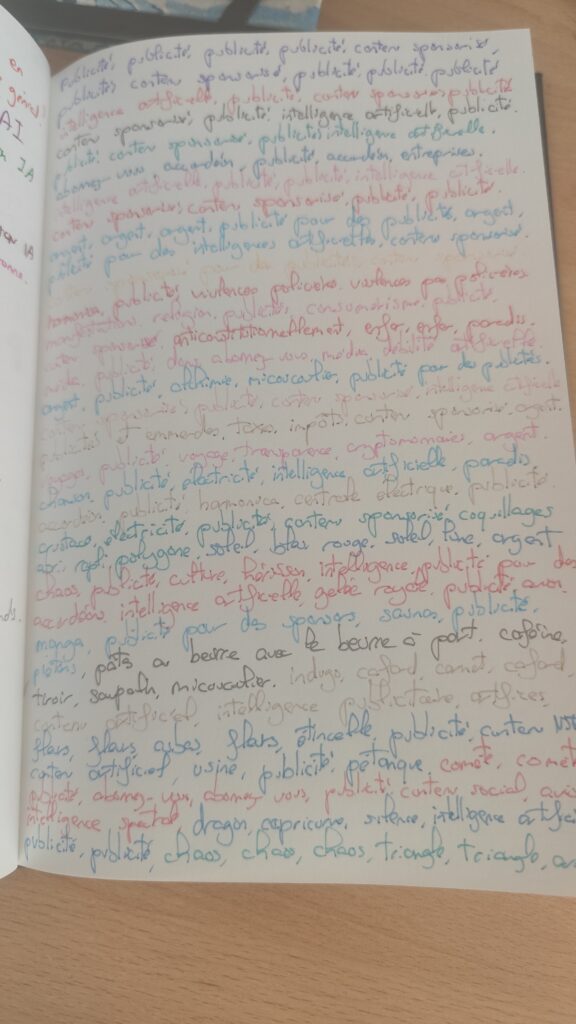 en
génial?
AI
IA
IA
publicité, publicité, publicité, publicité, contenu sponsorisé,
publicité, contenu sponsorisé, publicité, publicité, publicité
intelligence artificielle, publicité, contenu sponsorisé, publicité
contenu sponsorisé, publicité, intelligence artificielle, publicité.
publicité, contenu sponsorisé, publicité, intelligence artificielle.
abonnez-vous, accordéon, publicité, accordéon, entreprises.
intelligence artificielle, publicité, publicité, intelligence artificielle.
contenu sponsorisé, contenu sponsorisé, publicité, publicité.
argent, argent, argent, publicité pour des publicités, argent,
publicité pour des intelligences artificielles, contenu sponsorisé.
contenu sponsorisé, pour des publicités, contenu sponsorisé
publicité, violences policières, violences pas policières
manifestations, religion, publicité, consumérisme, publicité
contenu sponsorisé, anticonstitutionnellement, enfer, enfer, paradis.
publicité, abonnez-vous, débilité artificielle
argent, publicité, alchimie, micocoulier, publicité pour des publicités.
contenu sponsorisé, publicité, contenu sponsorisé, intelligence artificielle
publicités et amendes, taxes, impôts, contenu sponsorisé, argent.
publicité, voyage, transparence, cryptomonnaies, argent.
chanson, publicité, électricité, intelligence artificielle, paradis
accordéon, publicité, harmonica, centrale électrique, publicité
crustacé, électricité, publicité, contenu sponsorisé, coquillages
abri, polygone, soleil, bleu, rouge, soleil, lune, argent
chaos, publicité, culture, hérisson, intelligence, publicité pour des
accordéons, intelligence artificielle, gelée royale, publicité
manga, publicité pour des sponsors, saunas, publicité,
pâtes au beurre avec le beurre à part, caféine,
tiroir, micocoulier, indigo, cafard, carnet, cafard,
contenu artificiel, intelligence publicitaire, artifices
flars, flars, cubes, flars, étincelle, publicité, contenu
contenu artificiel, usine, publicité, pétanque, comète,
publicité, abonnez-vous, abonnez-vous, publicité, contenu social,
intelligence spectrale, dragon, capricorne, silence, intelligence
publicité, publicité, chaos, chaos, chaos, triangle, triangle,